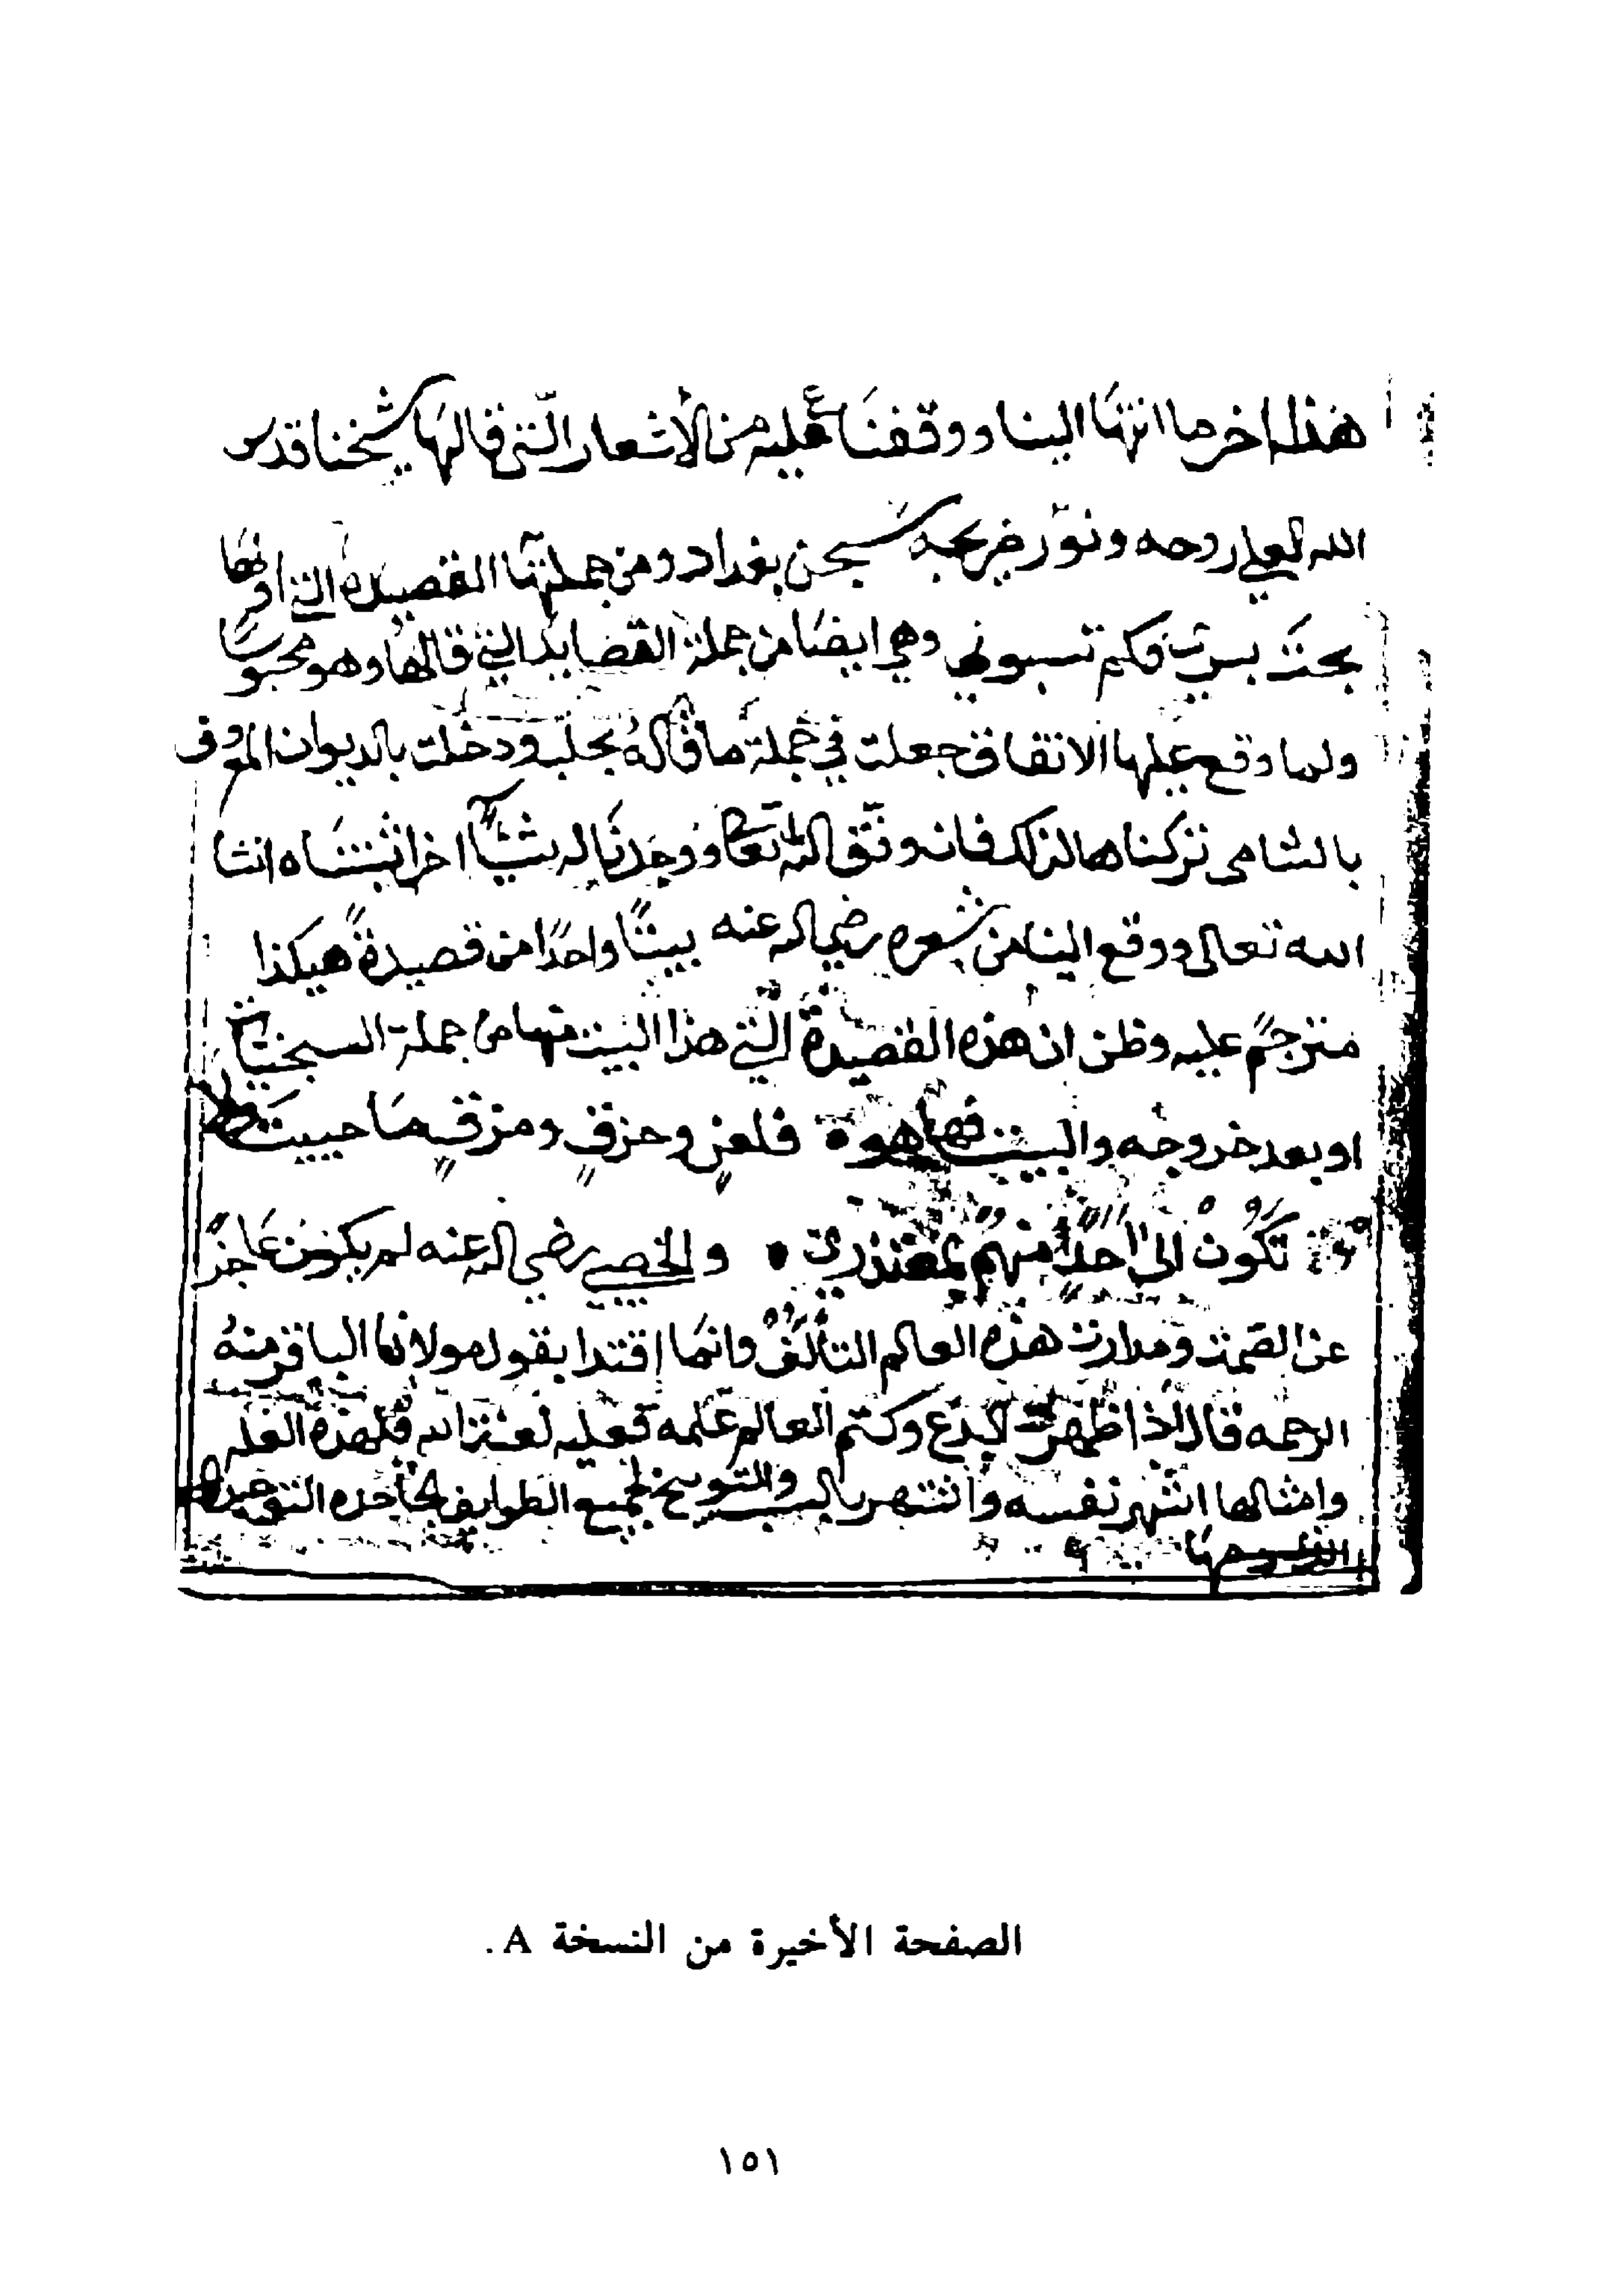 هذا اخر ما انتها الينا ووقفنا عليه من الأشعار الّتي قالها شيخنا قدس
الله تعلى روحه ونور ضريحه سجن بغداد ومن جملتها القصيدة التي اولها
بحت بسري فكم تسبوني وهي ايضا من جملة القصايد التي قالها وهو محبوسًا
ولما وقع عليها الاتفاق جعلت في جملة ما قاله بحلب ودخلت بالديوان المعروف
بالشامي تركناها لذلك فان وفّق الله تعا ووجدنا له شيئًا اخر اثبتناه انشا
الله تعالى ووقع الينا من شعره رضي اله عنه بيتًا واحدًا من قصيدة هيكذا
مترجم عليه وظن ان هذه القصيدة الّتي هذا البيت منها من جملة السجنيات
او بعد خروجه والبيت فهاهوه فلعنٍ وحزقٍ ومزقٍ ما حييت
تكون الى احدًا منهم بمعتذري • والخصيبي رضي اله عنه لم يكون عاجزًا
عن الصمت ومدارت هذه العالم التألف وانما اقتدا بقول مولانا الباقر منهُ
الرحمه قال اذا ظهرت البدع وكتم العالم علمه فعليه لعنة الله فلهذه العله
وامثالها اشهر نفسه وانتهر بالسب والتوبيخ لجميع الطوايف الجاحده التوحيد
الصفحة الأخيرة من النسخة A.
١٥١